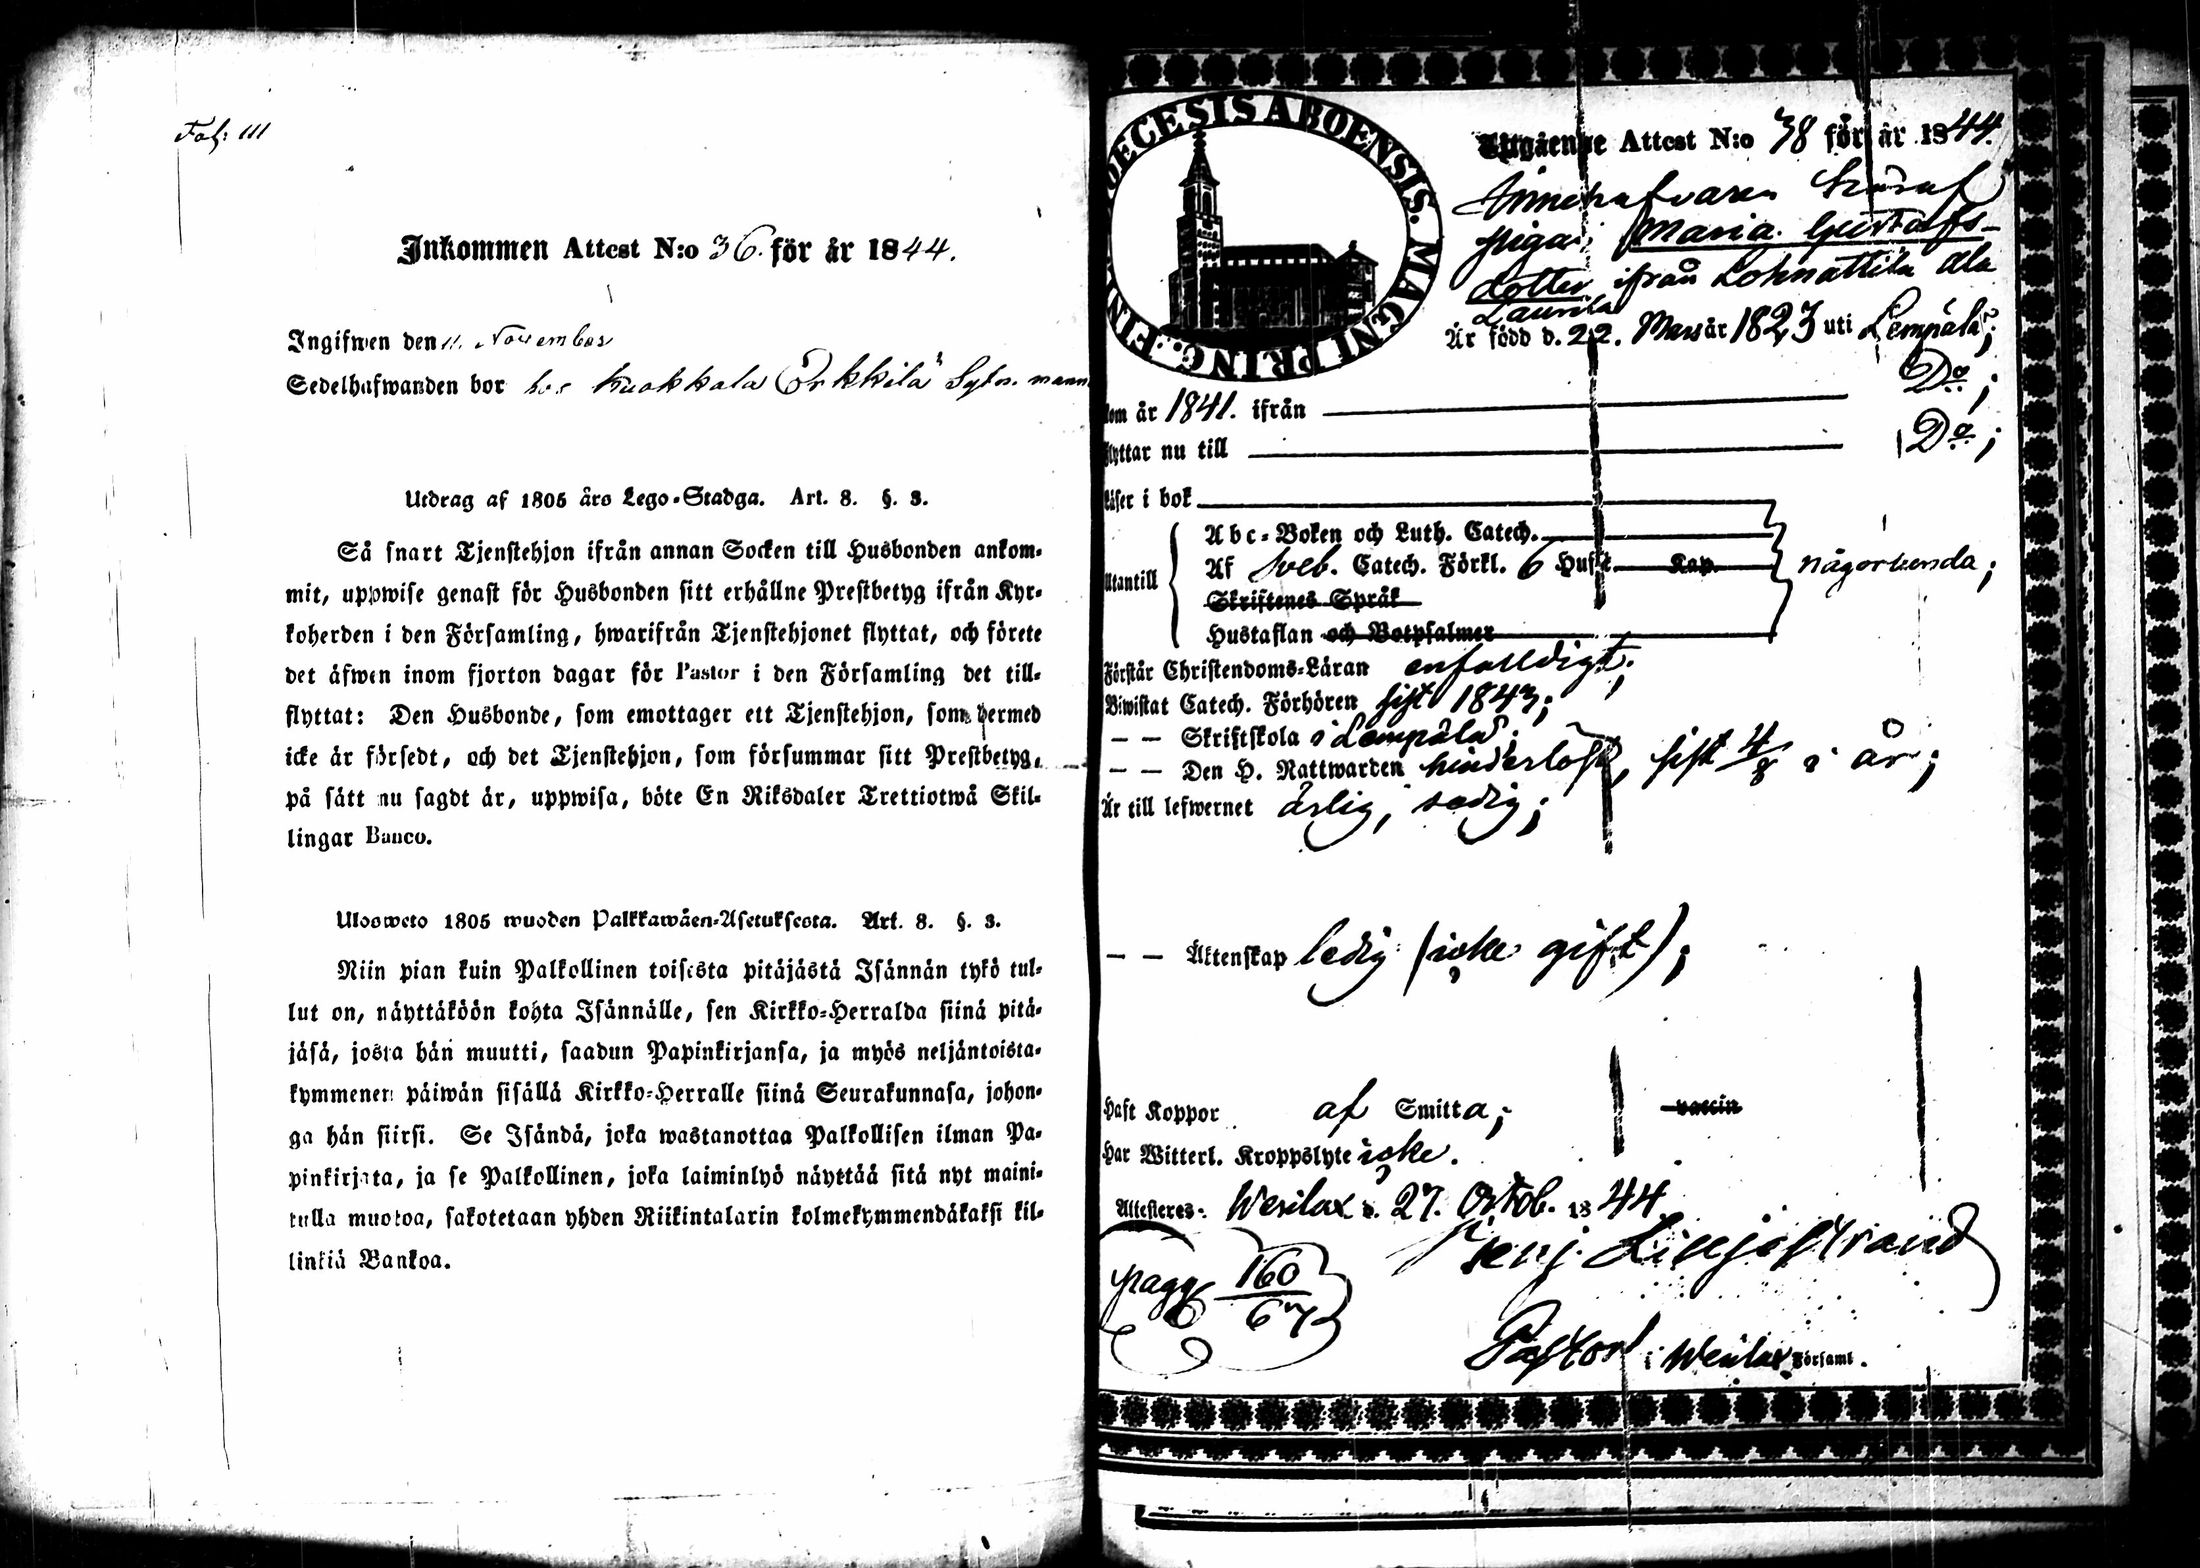 Fol: 111
Inkommen Attest N:o 36. för år 1844.
Ingifwen den 11. November
Sedelhafwanden bor hos Kuokkala Erkkilä Sytn. mann
Utdrag af 1805 års Lego-Stadga. Art. 8. §. 3.
Så snart Tjenstehjon ifrån annan Socken till Husbonden ankom-
mit, uppwise genast för Husbonden sitt erhållne Prestbetyg ifrån Kyr-
koherden i den Församling, hwarifrån Tjenstehjonet flyttat, och förete
det äfwen inom fjorton dagar för Pastor i den Församling det till-
flyttat: Den Husbonde, som emottager ett Tjenstehjon, som hermed
icke är försedt, och det Tjenstehjon, som försummar sitt Prestbetyg,
på sätt nu sagdt är, uppwisa, böte En Riksdaler Trettiotwå Skil-
lingar Banco.
Ulosweto 1805 wuoden Palkkawäen-Asetuksesta. Art. 8. §. 3.
Niin pian kuin Palkollinen toisesta pitäjästä Isännän tykö tul-
lut on, näyttäköön kohta Isännälle, sen Kirkko-Herralda siinä pitä-
jäsä, josta hän muutti, saadun Papinkirjansa, ja myös neljäntoista-
kymmenen päiwän sisällä Kirkko-Herralle siinä Seurakunnasa, johon-
ga hän siirsi. Se Isändä, joka wastanottaa Palkollisen ilman Pa-
pinkirjata, ja se Palkollinen, joka laiminlyö näyttää sitä nyt maini-
tulla muotoa, sakotetaan yhden Riikintalarin kolmekymmendäkaksi kil-
linkiä Bankoa.
DIOECESIS ABOENSIS. MAGNI PRINC. FIN
Utgående Attest N:o 38 för år 1844.
Innehafvaren häraf
pigan Maria Gustafs-
dotter ifrån Lohnattila Ala
Laurila
Är född d. 22. Mars år 1823 uti Lempäla;
kom år 1841. ifrån Do;
flyttar nu till Do;
Läser i bok
Utantill
Abc-Boken och Luth. Catech.
Af Sveb. Catech. Förkl. 6 Hufst. Kap. någorlunda;
Skriftenes Språk
Hustaflan och Botpsalmer
Förstår Christendoms-Läran enfalldigt;
Biwistat Catech. Förhören sist 1843;
— — Skriftskola i Lempäla;
— — Den H. Nattwarden hinderlöst, sist 4/8 i år;
Är till lefwernet ärlig, sedig;
— — Äktenskap ledig (icke gift);
Haft Koppor af Smitta; vaccin
Har Witterl. Kroppslyte icke.
Attesteres. Wesilax d. 27. Octob. 1844.
Benj. Liljestrand
pag 160/67
Pastor i Wesilax Församl.